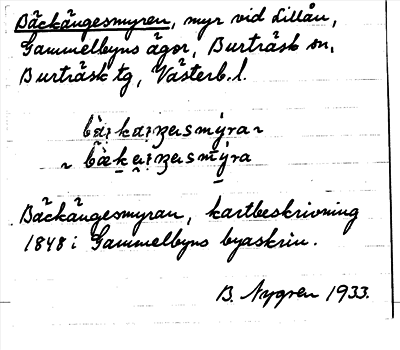 Bäckängesmyren, myr vid Lillån,
Gammelbyns ägor, Burträsk sn,
Burträsk tg, Västerb. l.
Bäckängesmyran, kartbeskrivning
1848 i Gammelbyns byaskrin.
B. Nygren 1933.